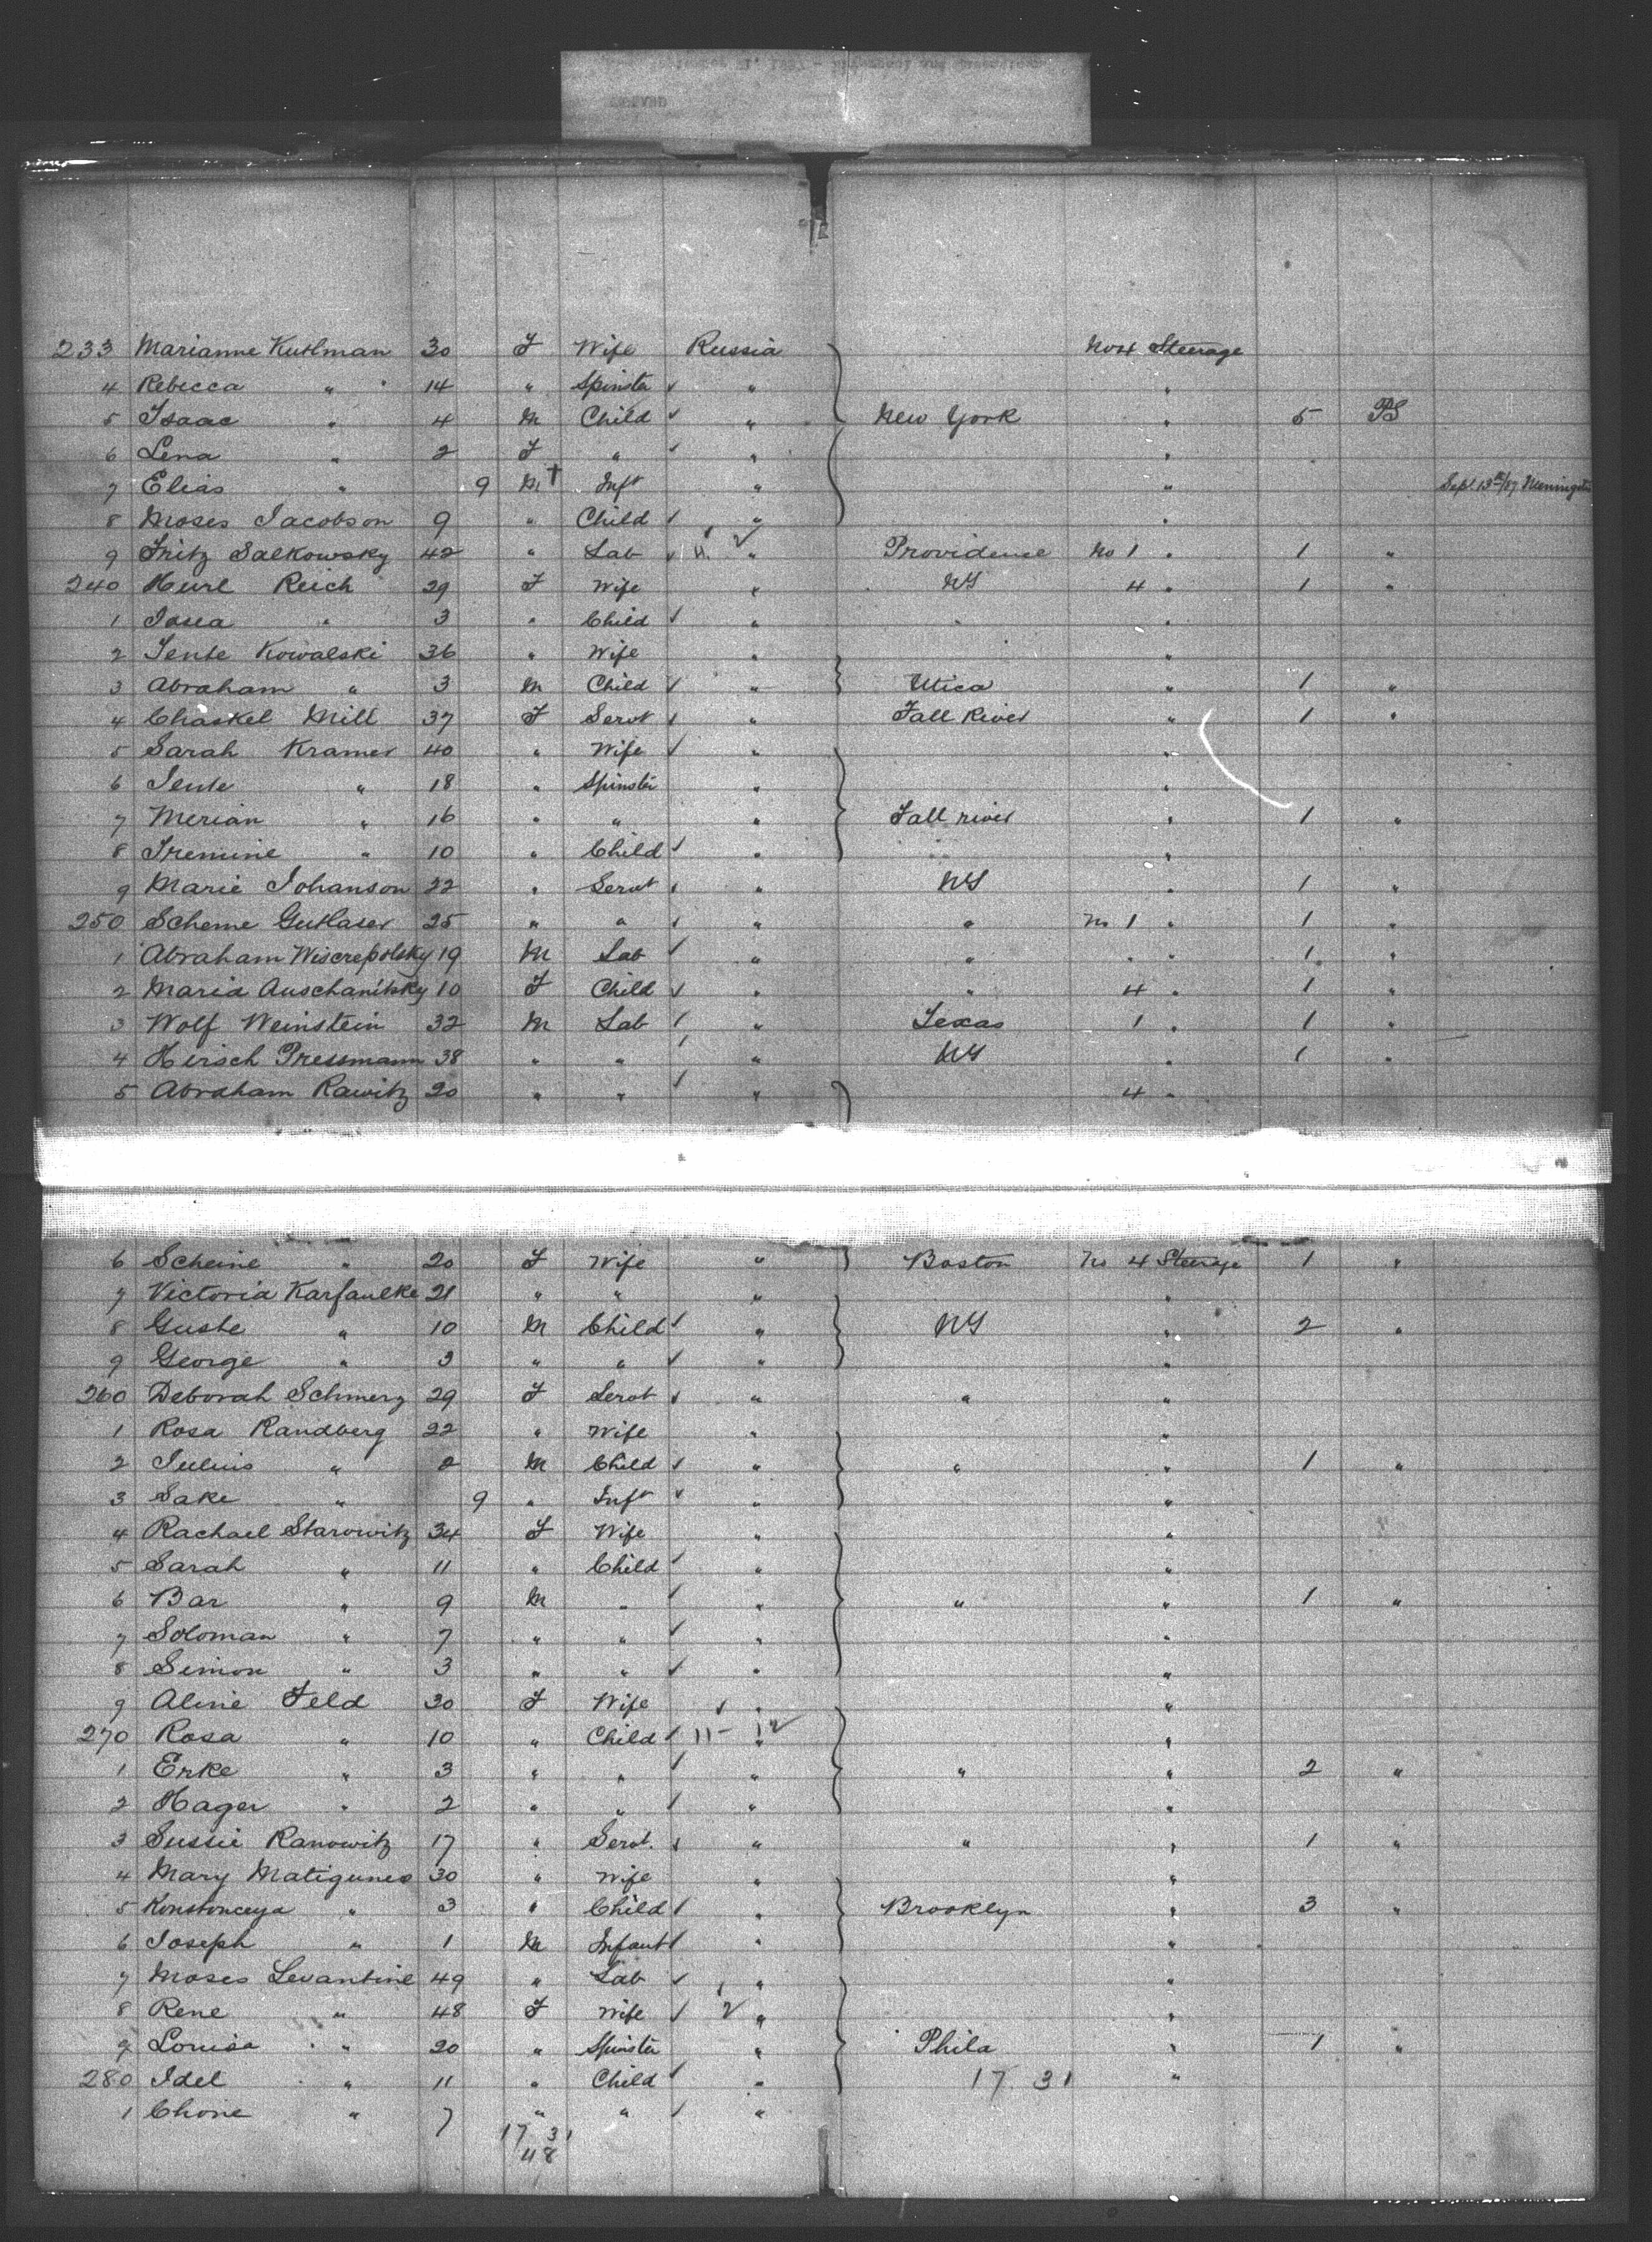 233 Marianne Kuthman 30 F Wife Russia No 4 Steerage
4 Rebecca " 14 " Spinster "  "
5 Isaac " 4 M Child " New York " 5 PS
6 Lena " 2 F " " "
7 Elias " 9 M † Inft " " Sept 13th/87 Meningitis
8 Moses Jacobson 9 " Child " "
9 Fritz Salkowsky 42 " Lab " Providence No 1 " 1 "
240 Reich 29 F Wife " NY 4 " 1 "
1 Josea " 3 " Child " " "
2 Jente Kowalski 36 " Wife " "
3 Abraham " 3 M Child " Utica " 1 "
4 Chaskel Mill 37 F Servt " Fall River " 1 "
5 Sarah Kramer 40 " Wife " "
6 Jente " 18 " Spinster " "
7 Merian " 16 " " " Fall river " 1 "
8 " 10 " Child " "
9 Marie Johanson 22 " Servt " NY " 1 "
250 Scheme Gutlaser 25 " " " " No 1 " 1 "
1 Abraham Wiscrepolsky 19 M Lab " " " " 1 "
2 Maria Auschanitsky 10 F Child " " 4 " 1 "
3 Wolf Weinstein 32 M Lab " Texas 1 " 1 "
4 Hirsch Pressmann 38 " " " NY " 1 "
5 Abraham Rawitz 20 " " " 4 "
6 Scheine " 20 F Wife " Boston No 4 Steerage 1 "
7 Victoria Karfaulke 21 " " " "
8 Guste " 10 M Child " NY " 2 "
9 George " 3 " " " "
260 Deborah Schmerz 29 F Servt " " "
1 Rosa Randberg 22 " Wife " "
2 Julius " 2 M Child " " " 1 "
3 Sake " 9 " Inft " "
4 Rachael Starowitz 34 F Wife " "
5 Sarah " 11 " Child " "
6 Bar " 9 M " " " " 1 "
7 Soloman " 7 " " " "
8 Simon " 3 " " " "
9 Aline Feld 30 F Wife " "
270 Rosa " 10 " Child 11 - " "
1 Erke " 3 " " " " " 2 "
2 Hager " 2 " " " "
3 Sussie Ranowitz 17 " Servt. " " " 1 "
4 Mary Matigunes 30 " Wife " "
5 Konstonceya " 3 " Child " Brooklyn " 3 "
6 Joseph " 1 M Infant " "
7 Moses Levantine 49 " Lab " "
8 Rene " 48 F Wife " "
9 Louisa " 20 " Spinster " Phila " 1 "
280 Idel " 11 " Child " 17 31 "
1 Chone " 7 " " "
17 31
48